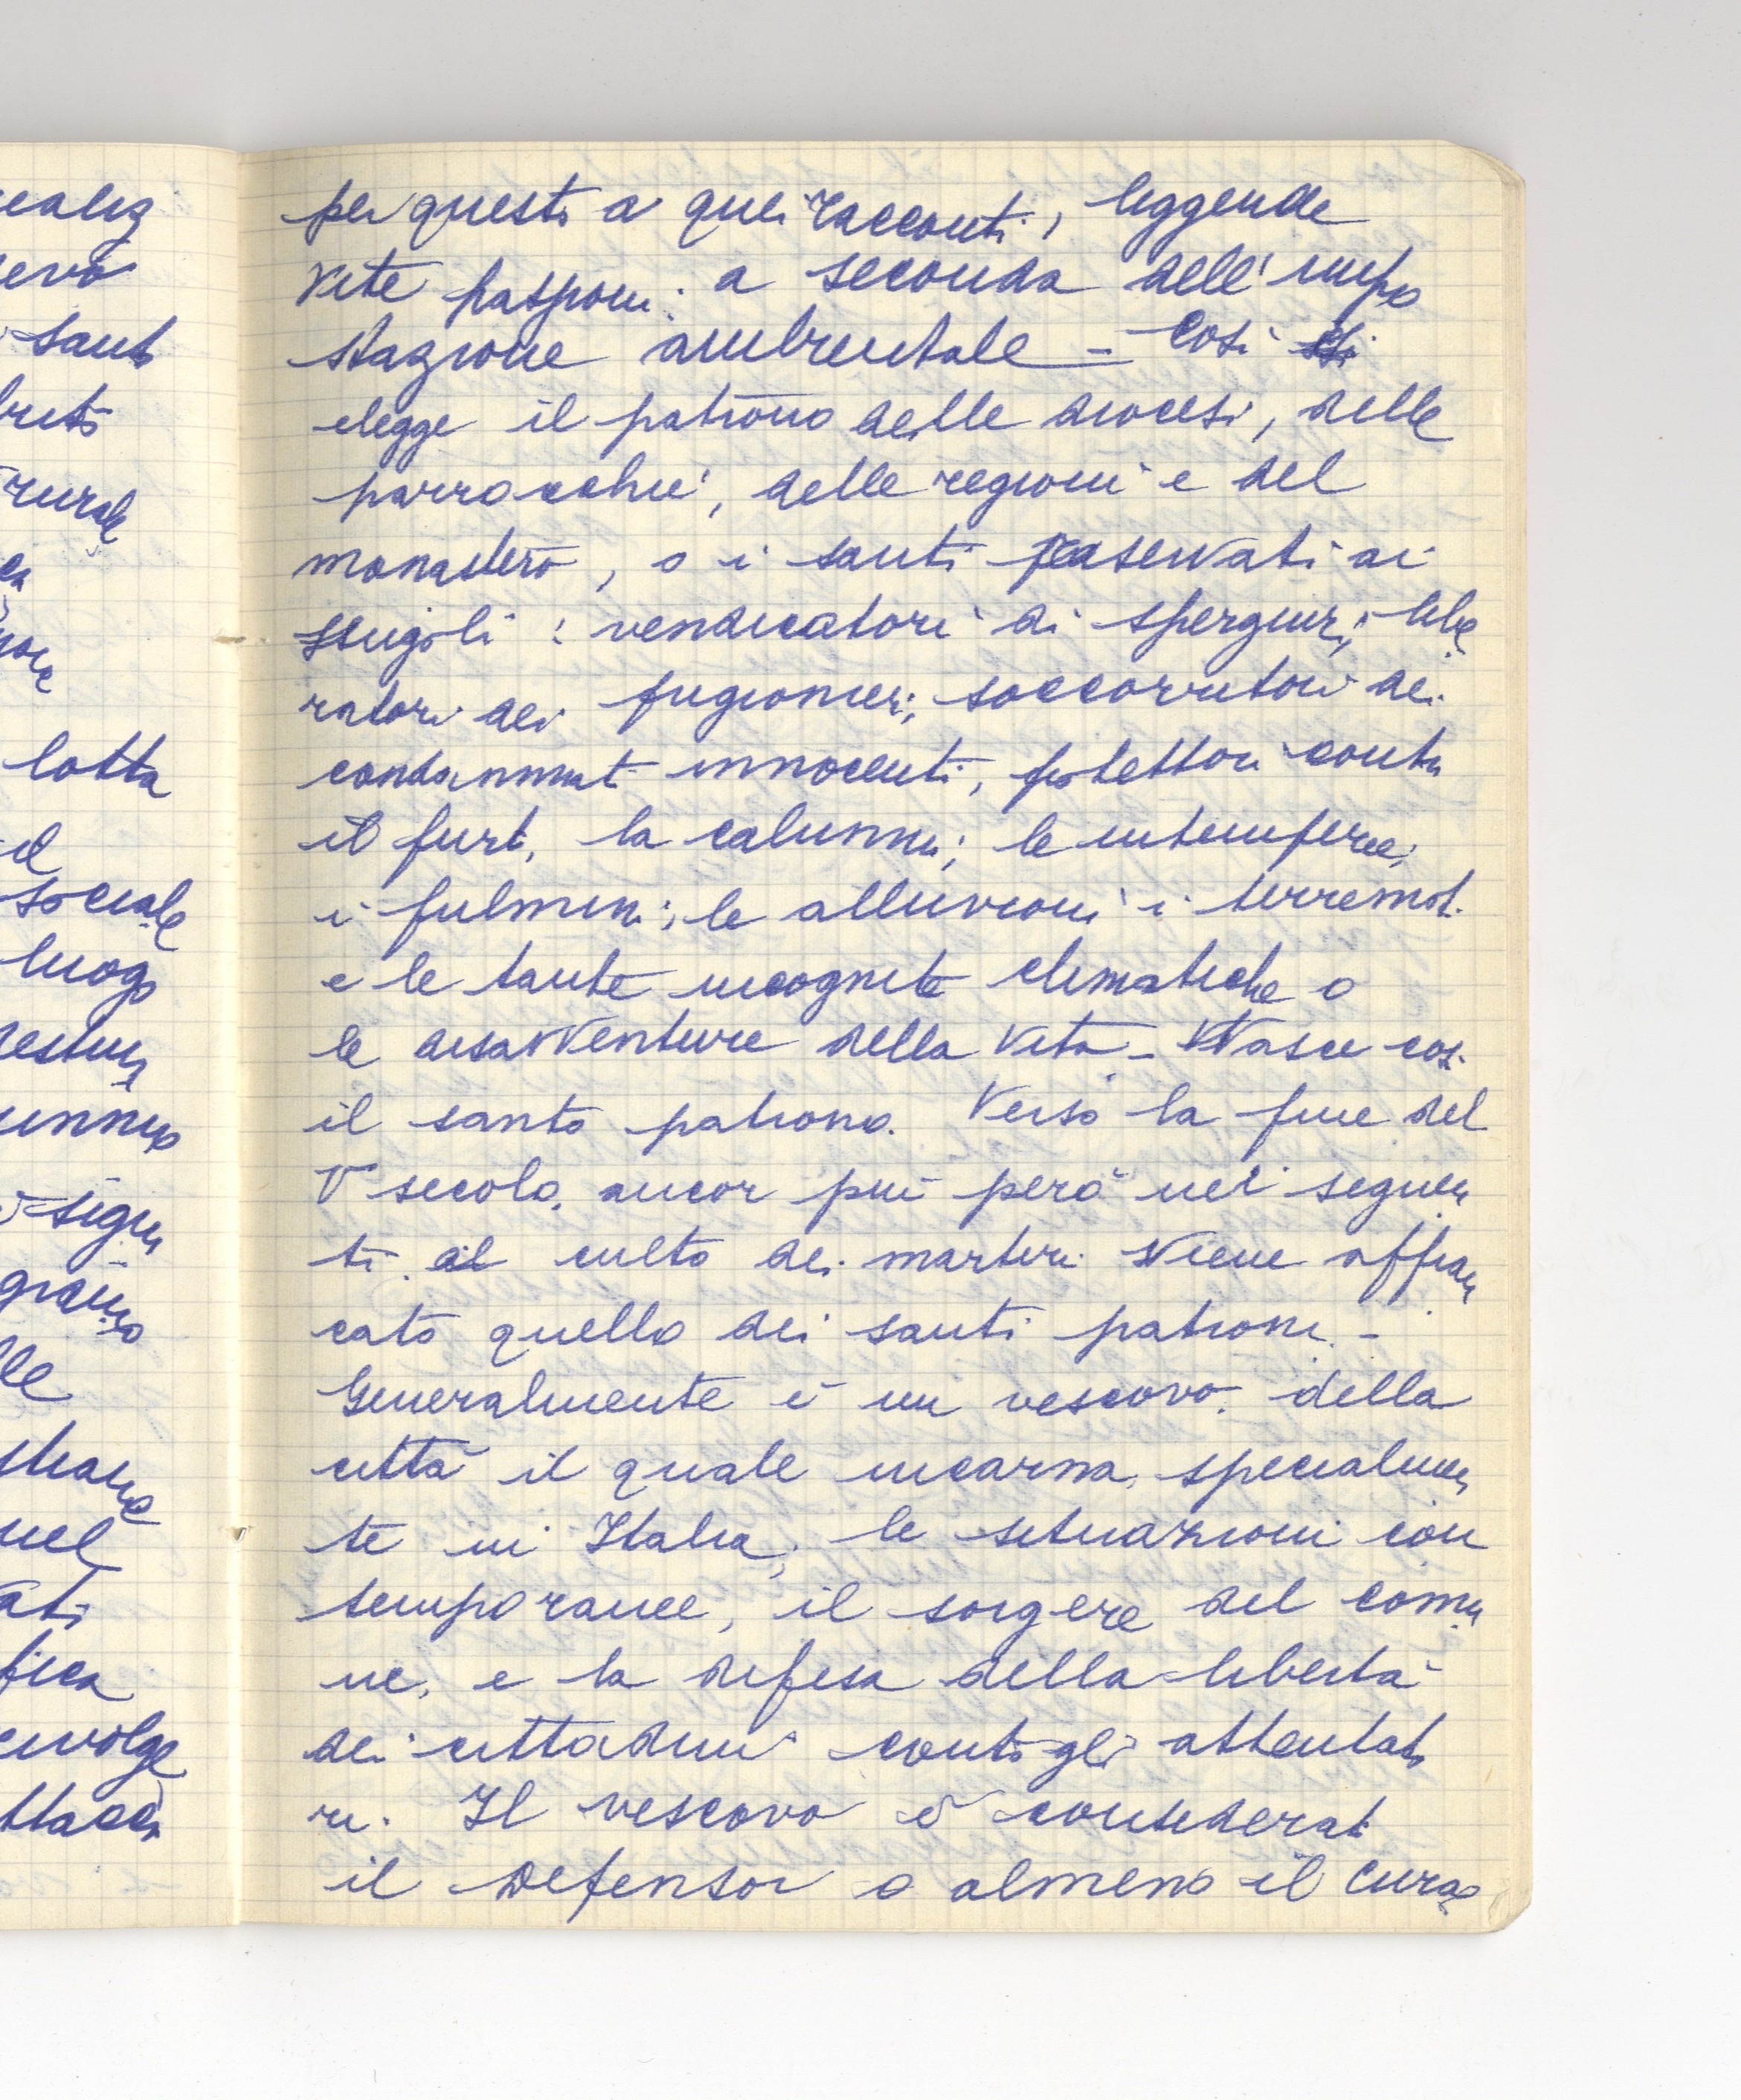 per questi a quei racconti, leggende
vite passioni: a seconda dell'impo
stazione ambientale - Così
elegge il patrono delle diocesi, delle
parrocchie, delle regioni e del
monastero, o i santi riservati ai
singoli: vendicatori di spergiuri, libe
ratori dei prigionieri, soccorritori dei
condannati innocenti, protettori contro
il furto, la calunnia, le intemperie,
i fulmini, le alluvioni i terremoti
e le tante incognite climatiche o
le disavventure della vita - Nasce così
il santo patrono. Verso la fine del
V secolo, ancor più però nei seguen
ti al culto dei martiri viene affian
cato quello dei santi patroni -
Generalmente è un vescovo della
città il quale incarna, specialmen
te in Italia, le situazioni con
temporanee, il sorgere del comu
ne, e la difesa della libertà
dei cittadini contro gli attentato
ri. Il vescovo è considerato
il Defensor o almeno il curato
ealiz
evo
santo
rurale
lotta
il
sociale
luogo
segu
lle
nel
ati
fica